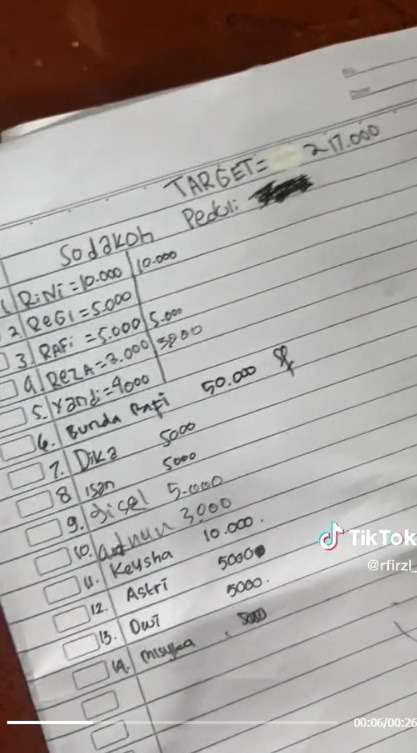 TARGET= 217.000
Sodakoh Peduli
1 RiNi =10.000 10.000
2 ReGi =5.000
3 RAFi =5.000 5.000
4 ReZA=2.000
5. Yandi=4000
6. Bunda Rafi 50.000
7. Dika 5000
8 isan 5000
9. gisel 5.000
10. adnan 3.000
11. Keysha 10.000.
12. Astri 5000
13. Dwi 5000.
14. misyka . 5000
TikTok
@rfirzl_
00:06/00:26